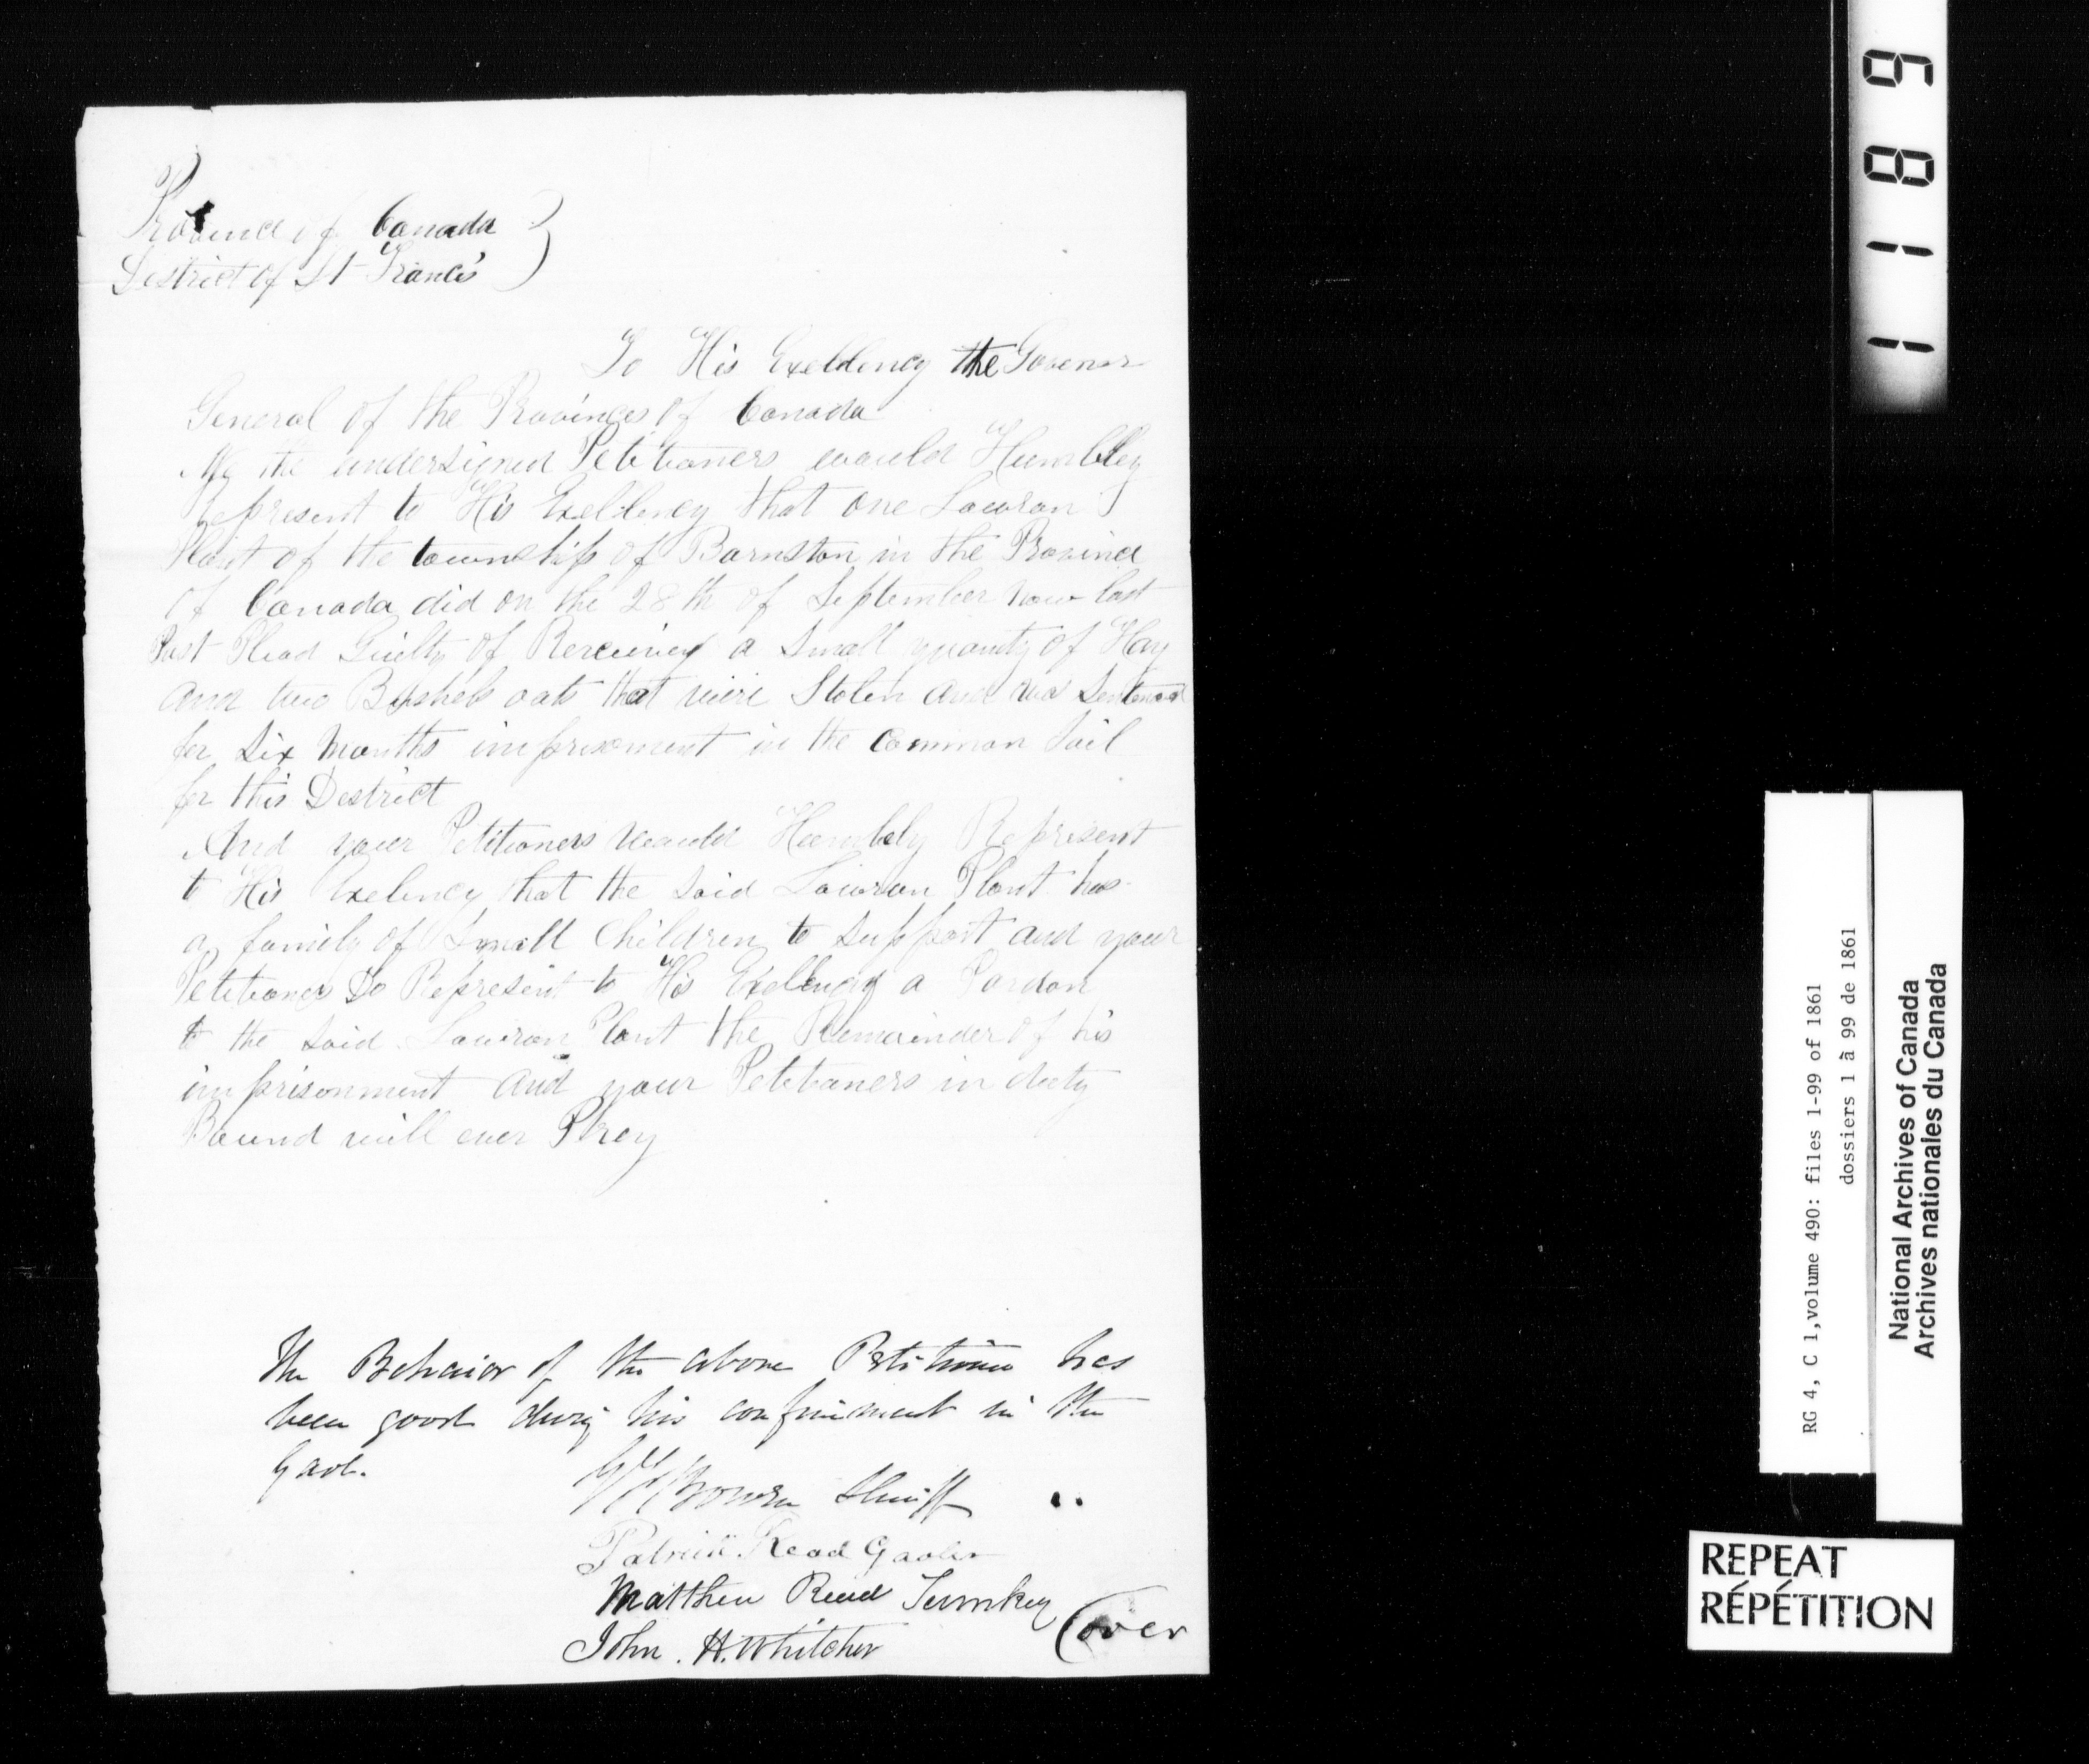 Province of Canada
District of St Francis
To His Exellency the Govenor
General of the Provinces of Canada
We the undersigned Petitioners would Humbley
Represent to His Exellency that one Lawson
Plant of the township of Barnston in the Province
of Canada did on the 28th of September now last
Past Plead Guilty of Receiving a Small quantity of Hay
and two Bushels oats that were Stolen and was Sentenced
for Six Months imprisonment in the Common Jail
for this District
And your Petitioners would Humbely Represent
to His Exelency that the Said Lawson Plant has
a family of Small Children to Support and your
Petitioners Do Represent to His Exellency a Pardon
to the Said Lawson Plant the Remainder of his
imprisonment and your Petitioners in duty
Bound will ever Pray
The Behavior of the above Petitioner has
been good during his confinement in the
Gaol.
Bowen Sheriff
Patrick Read Gaoler
Matthew Read Turnkey
John. H. Whitcher
(over
1189
RG 4, C 1,volume 490: files 1-99 of 1861
dossiers 1 à 99 de 1861
National Archives of Canada
Archives nationales du Canada
REPEAT
RÉPÉTITION